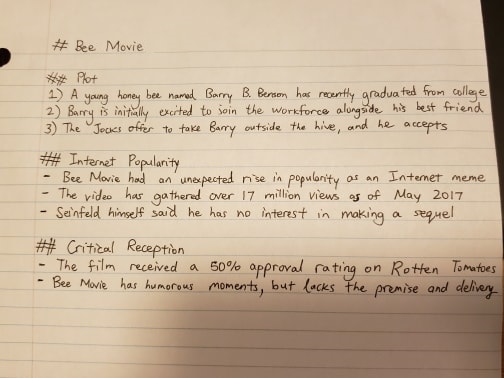 # Bee Movie
## Plot
1) A young honey bee named Barry B. Benson has recently graduated from college
2) Barry is initially excited to join the workforce alongside his best friend
3) The Jocks offer to take Barry outside the hive, and he accepts
## Internet Popularity
- Bee Movie had an unexpected rise in popularity as an Internet meme
- The video has gathered over 17 million views as of May 2017
- Seinfeld himself said he has no interest in making a sequel
## Critical Reception
- The film received a 50% approval rating on Rotten Tomatoes
- Bee Movie has humorous moments, but lacks the premise and delivery